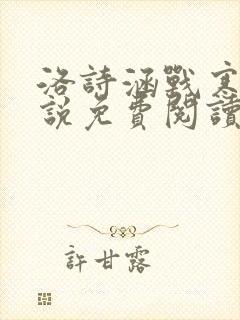 洛詩涵戰寒
說免費閱讀
許甘露